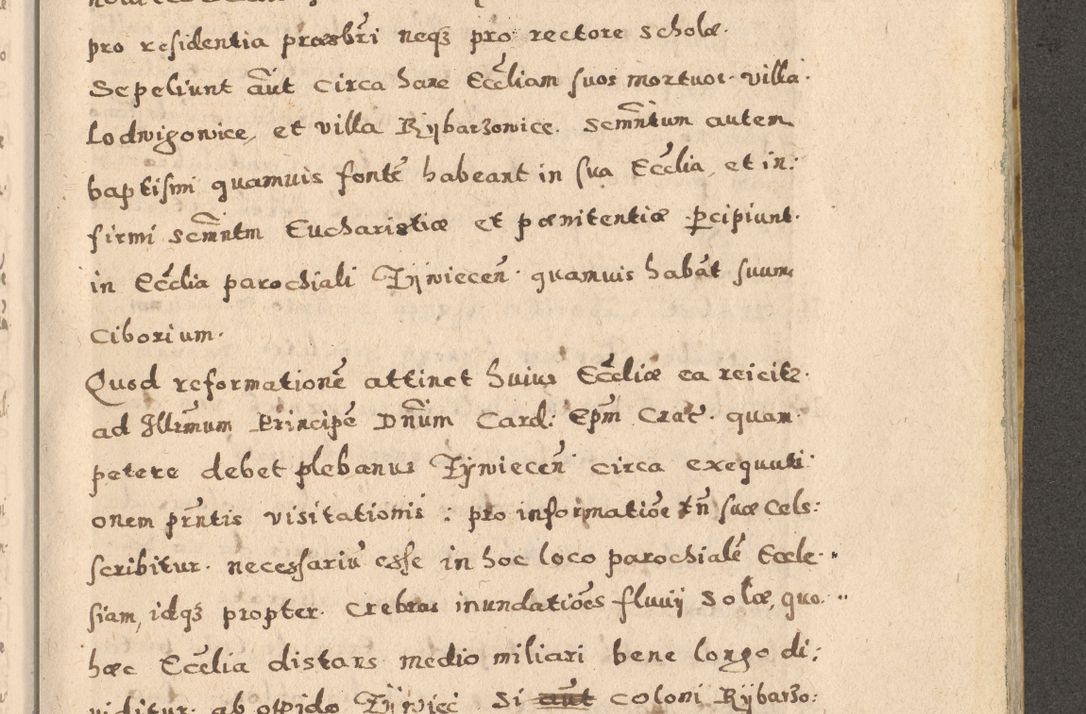 pro residentia præsbri neqз pro rectore scholæ.
Sepeliunt aūt circa hanc Ecćliam suos mortuos villa
Lodwigowice, et villa Rÿbarzowice. Scm̄ntum autem
baptismi quamuis fontē habeant in sua Ecćlia, et in:
firmi scm̄ntm Eucharistiæ et pœnitentiæ percipiunt.
in Ecćlia parochiali Zÿwiecen̄ quamuis habāt suum
Ciborium.
Quod reformationē attinet huius Ecćliæ ea reicitz.
ad Illrm̄um Principē Dnūm Card: Epm̄ Crac. quam
petere debet plebanus Zÿwiecen̄ circa exequuti:
onem prn̄tis visitationis : pro informatiōe tn̄ suæ Cels:
scribitur. necessariū esse in hoc loco parochialē Eccle-
siam, idqз propter. crebras inundatiōes fluuij Solæ, quo.
hæc Ecćlia distans medio miliari bene longo di:
viditur. ab oppido Zÿwiec. Si aūt coloni Rÿbarzo: